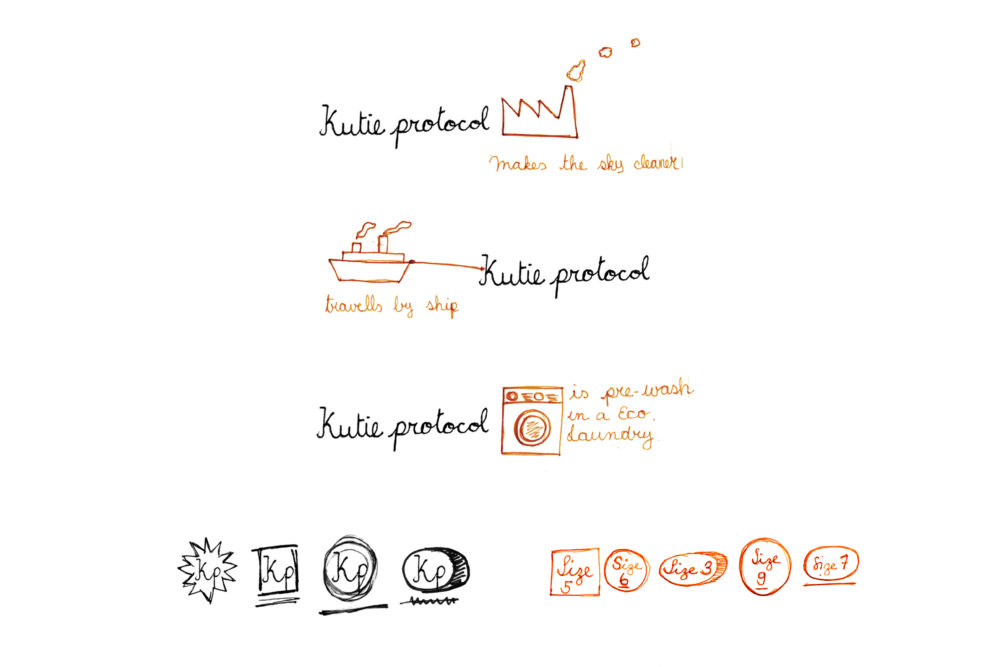 Kutie protocol
makes the sky cleaner!
Kutie protocol
travells by ship
Kutie protocol
is pre-wash
in a Eco.
Laundry.
Kp Kp Kp Kp
Size 5 Size 6 Size 3 Size 9 Size 7